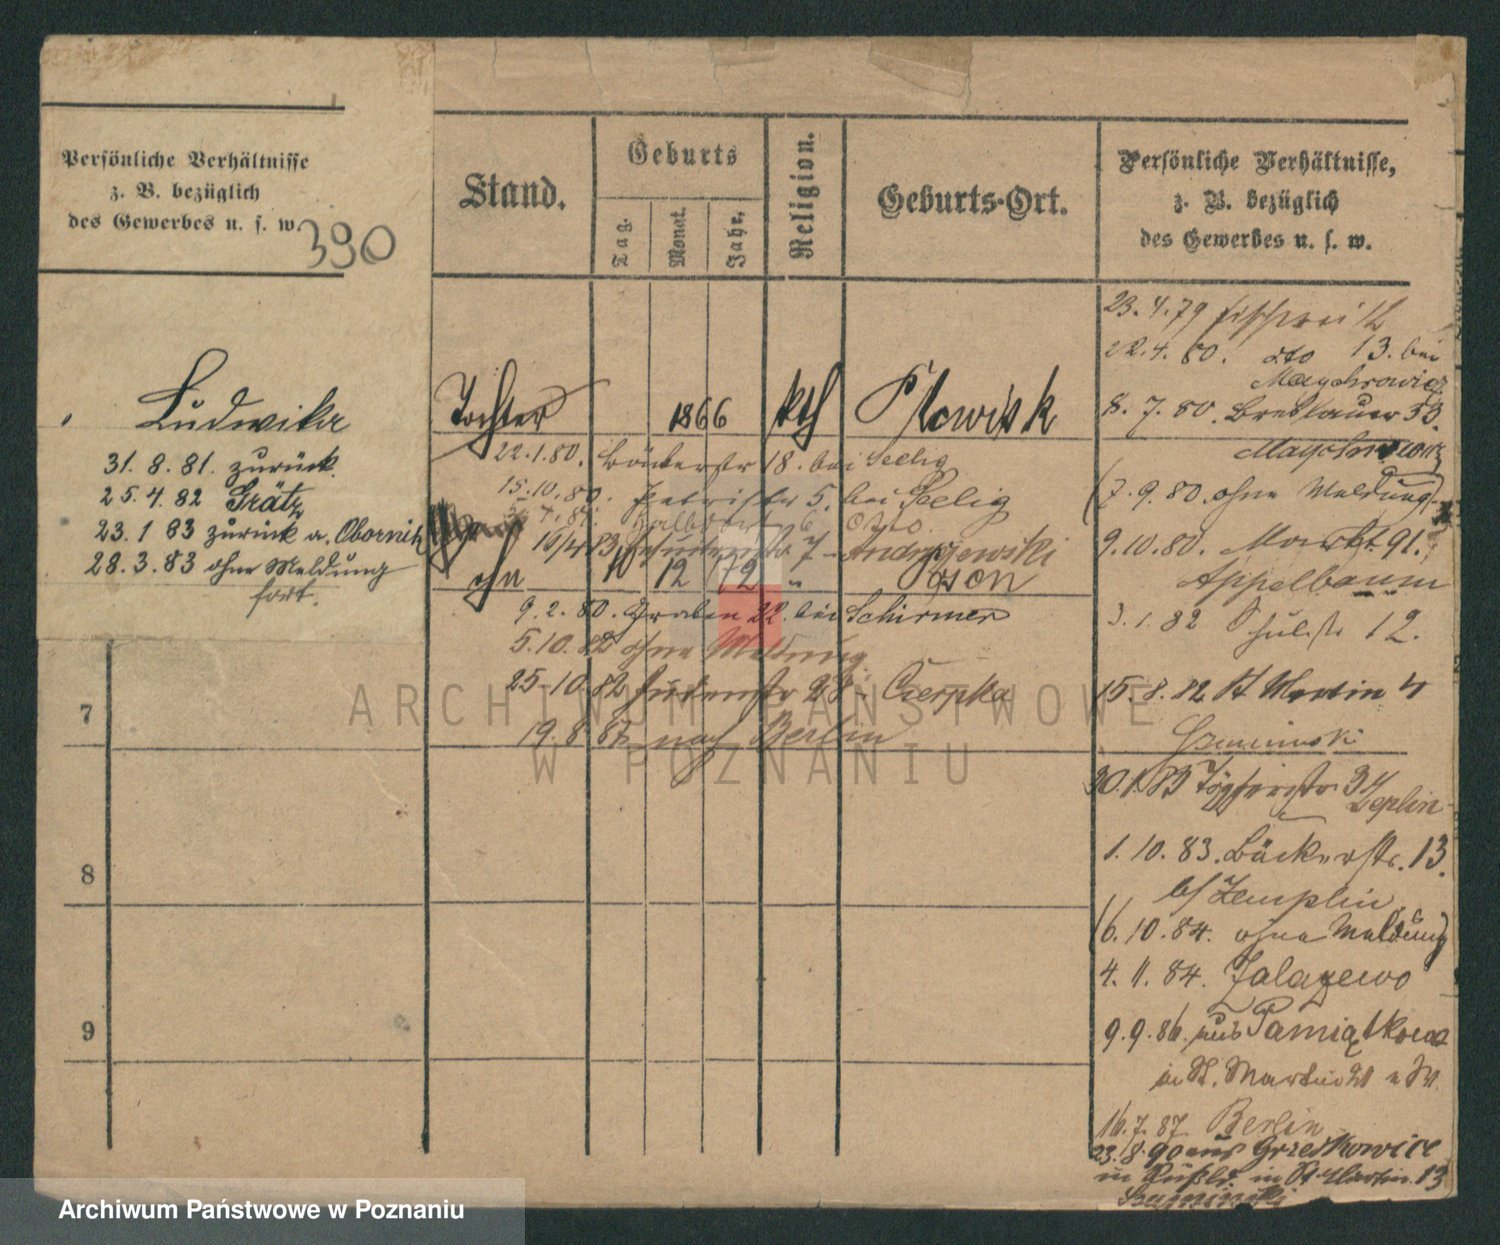 Persönliche Verhältnisse
z. B. bezüglich
des Gewerbes u. s. w.
390
Ludwika
31. 8. 81. zurück
25. 4. 82 Grätz
23. 1 83 zurück a. Obornik
28. 3. 83 ohne Meldung
fort.
7
8
9
Stand.
Geburts
Tag.
Monat.
Jahr.
Religion.
Geburts-Ort.
Tochter 1866 kth
22. 1. 80. 18. bei Seelig
15. 10. 80. 5. bei Seelig
16/4 83 7 Andrzejewski
10 12 72 " Posen
9. 2. 80. Graben 22. bei Schirmer
5. 10. 82 ohne Meldung
25. 10. 82 Judenstr 28 - Czerpka
19. 8. 87. nach Berlin
Persönliche Verhältnisse,
z. B. bezüglich
des Gewerbes u. s. w.
23. 4. 79
22. 4. 80. dto 13. bei
Maychrowicz
8. 7. 80. Breslauer 30.
Maychrowicz
(7. 9. 80. ohne Meldung)
9. 10. 80. Markt 91.
Appelbaum
3. 1. 82 12.
15. 8. 82 St Martin 4
30. 1. 83 34
Zeplin
1. 10. 83. Bäckerstr. 13.
bei Zemplin
(6. 10. 84. ohne Meldung)
4. 11. 84. Zalazewo
9. 9. 86. aus Pamiątkowo
in St. Martin
16. 7. 87. Berlin
23. 8. 90 aus Grzeskowice
in Rußld. in St Martin. 13
ARCHIWUM PAŃSTWOWE
W POZNANIU
Archiwum Państwowe w Poznaniu